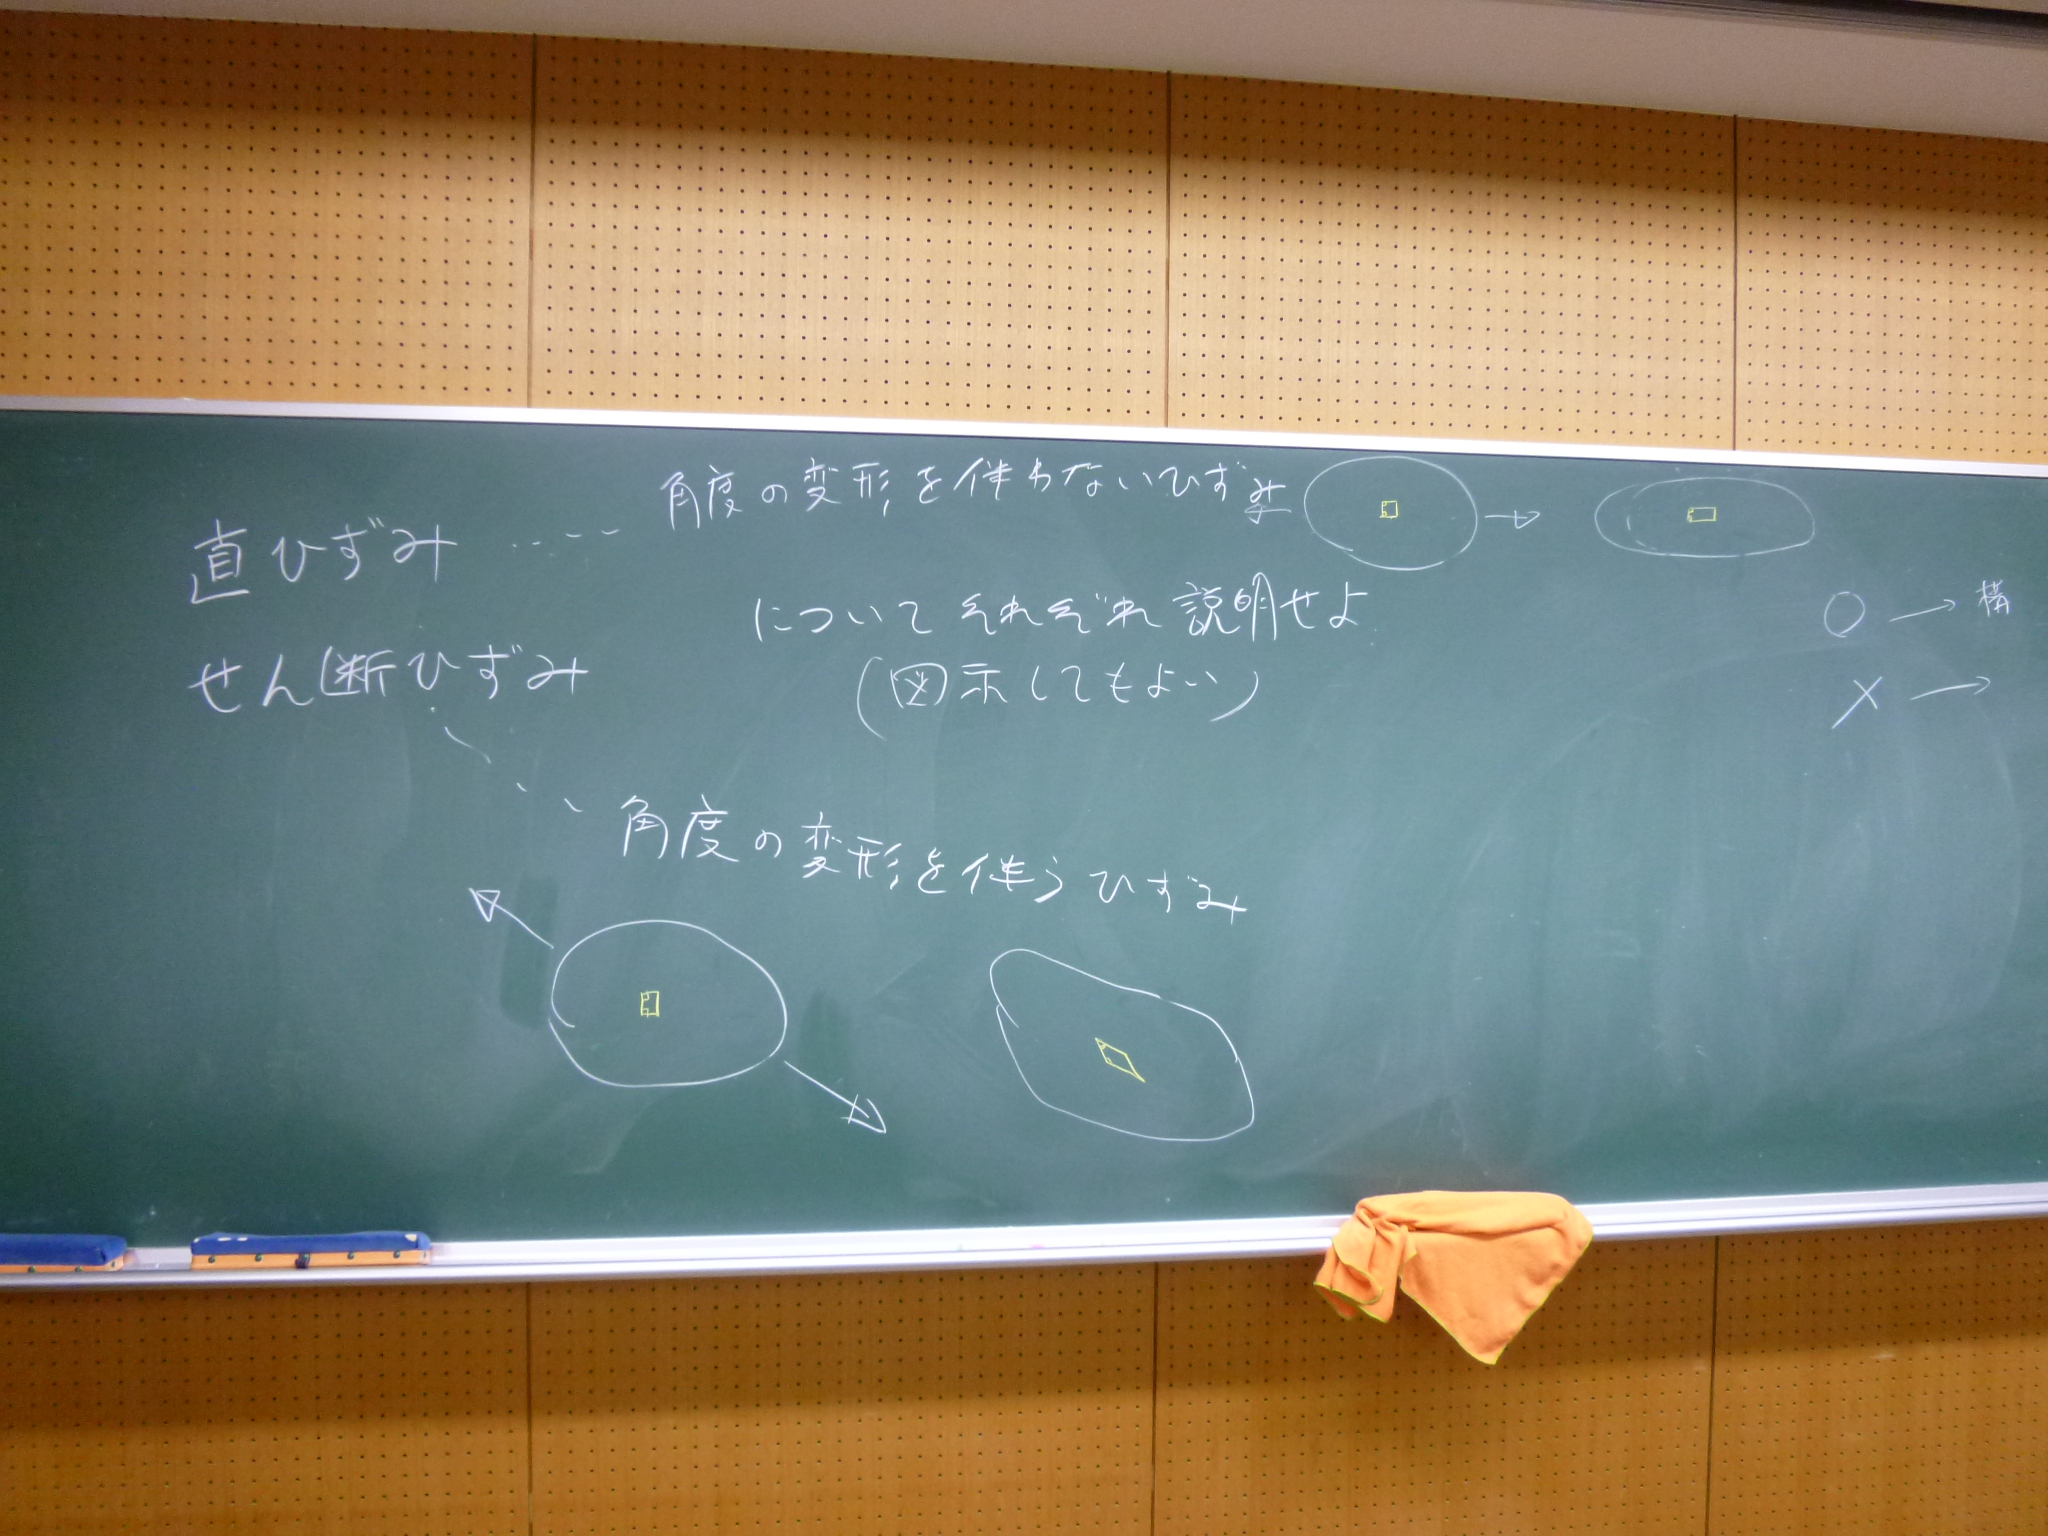 直ひずみ ・・・・ 角度の変形を伴わないひずみ
せん断ひずみ
について それぞれ 説明せよ
(図示してもよい)
角度の変形を伴うひずみ
○ → 構
× →